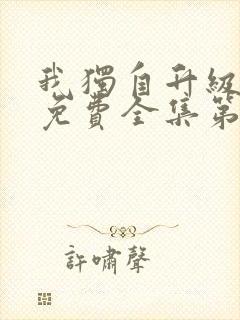 我獨自升級
免費全集第
許嘯聲